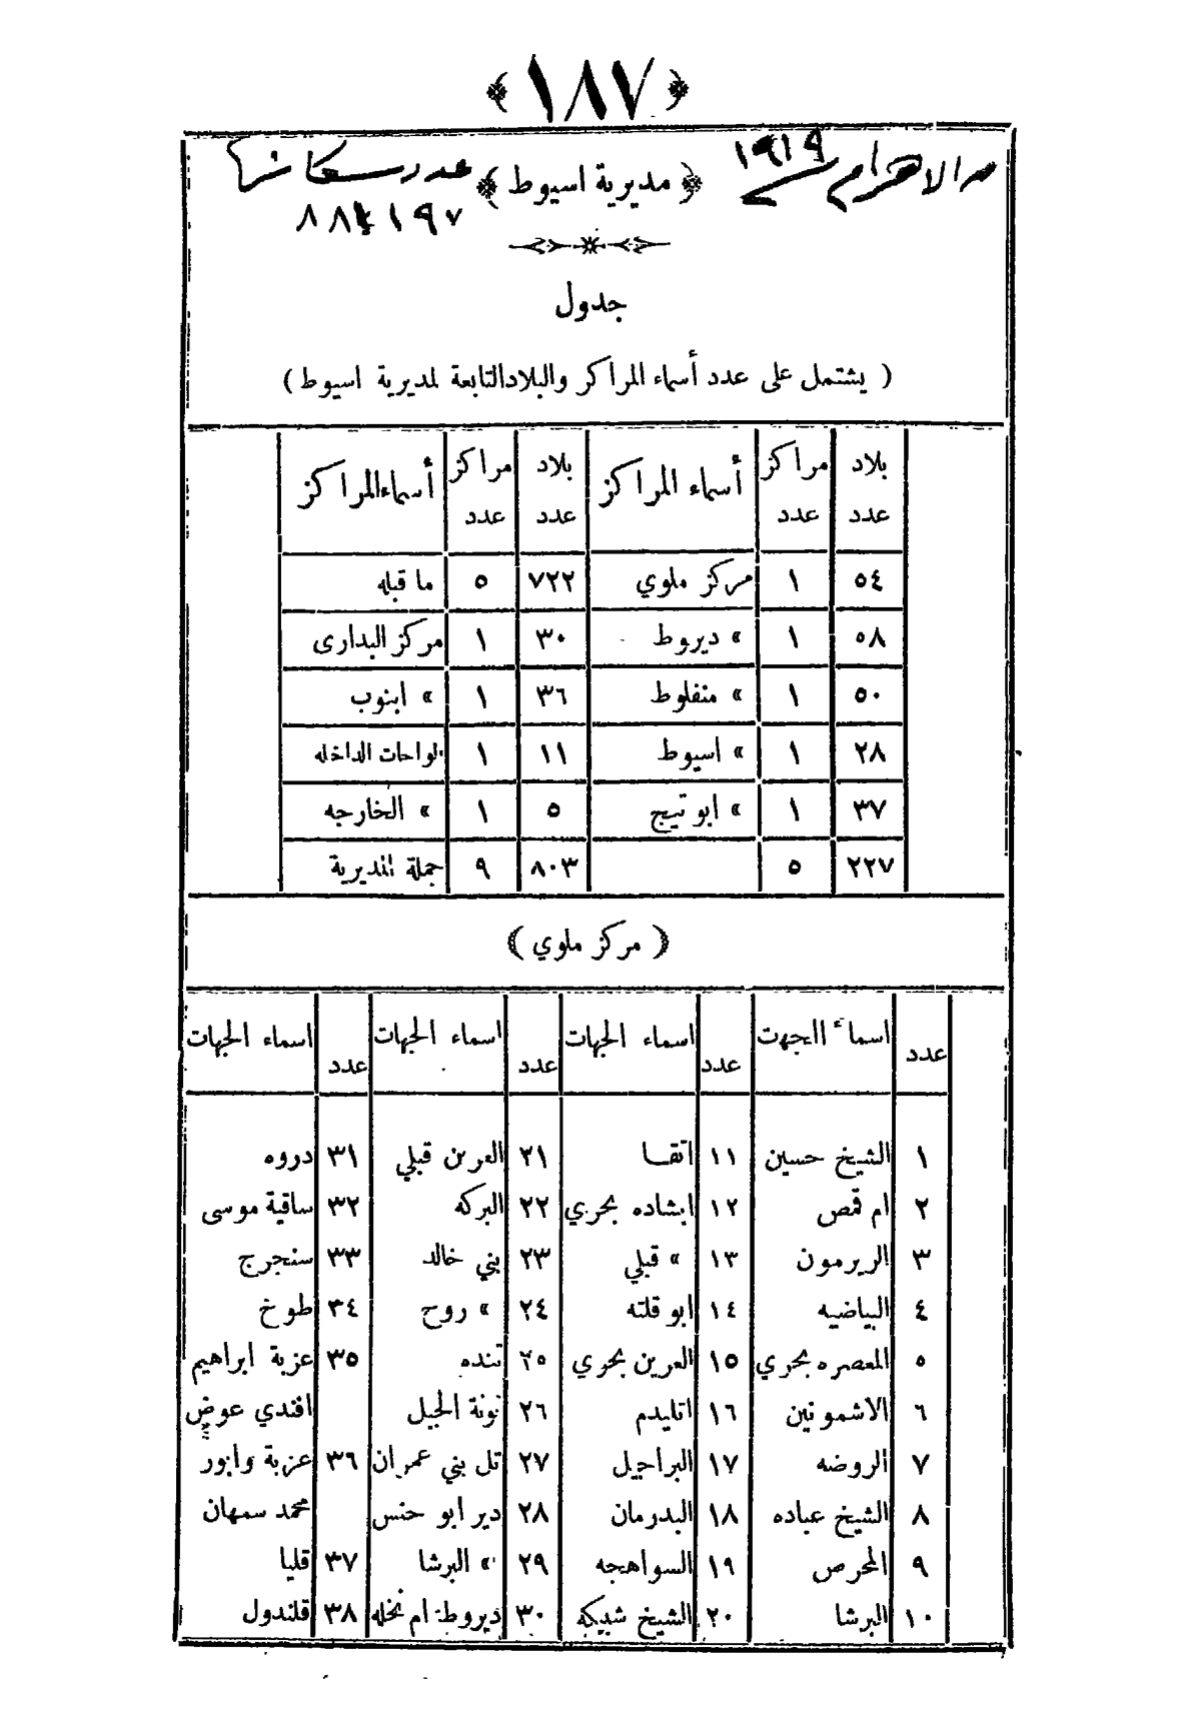 ﴿١٨٧﴾
من الاهرام ١٩١٩ ﴿مديرية اسيوط﴾ عدد سكانها
٨٨١١٩٧
جدول
( يشتمل على عدد أسماء المراكز والبلاد التابعة لمديرية اسيوط )
بلاد عدد | مراكز عدد | أسماء المراكز | بلاد عدد | مراكز عدد | أسماء المراكز
٥٤ | ١ | مركز ملوي | ٧٢٢ | ٥ | ما قبله
٥٨ | ١ | » ديروط | ٣٠ | ١ | مركز البدارى
٥٠ | ١ | » منفلوط | ٣٦ | ١ | » ابنوب
٢٨ | ١ | » اسيوط | ١١ | ١ | لواحات الداخله
٣٧ | ١ | » ابو تيج | ٥ | ١ | » الخارجه
٢٢٧ | ٥ | | ٨٠٣ | ٩ | جملة المديرية
﴿ مركز ملوي ﴾
عدد | اسماء الجهت | عدد | اسماء الجهات | عدد | اسماء الجهات | عدد | اسماء الجهات
١ | الشيخ حسين | ١١ | اتقا | ٢١ | العرين قبلي | ٣١ | دروه
٢ | ام قمص | ١٢ | ابشاده بحري | ٢٢ | البركه | ٣٢ | ساقية موسى
٣ | الريرمون | ١٣ | » قبلي | ٢٣ | بني خالد | ٣٣ | سنجرج
٤ | البياضيه | ١٤ | ابو قلته | ٢٤ | » روح | ٣٤ | طوخ
٥ | المعصره بحري | ١٥ | العرين بحري | ٢٥ | تنده | ٣٥ | عزبة ابراهيم
٦ | الاشمونين | ١٦ | اتليدم | ٢٦ | نونة الجبل | | افندي عوض
٧ | الروضه | ١٧ | البراجيل | ٢٧ | تل بني عمران | ٣٦ | عزبة وابور
٨ | الشيخ عباده | ١٨ | البدرمان | ٢٨ | دير ابو حنس | | محمد سمهان
٩ | المحرص | ١٩ | السواهجه | ٢٩ | » البرشا | ٣٧ | قلبا
١٠ | البرشا | ٢٠ | الشيخ شبيكه | ٣٠ | ديروط ام نخله | ٣٨ | قلندول